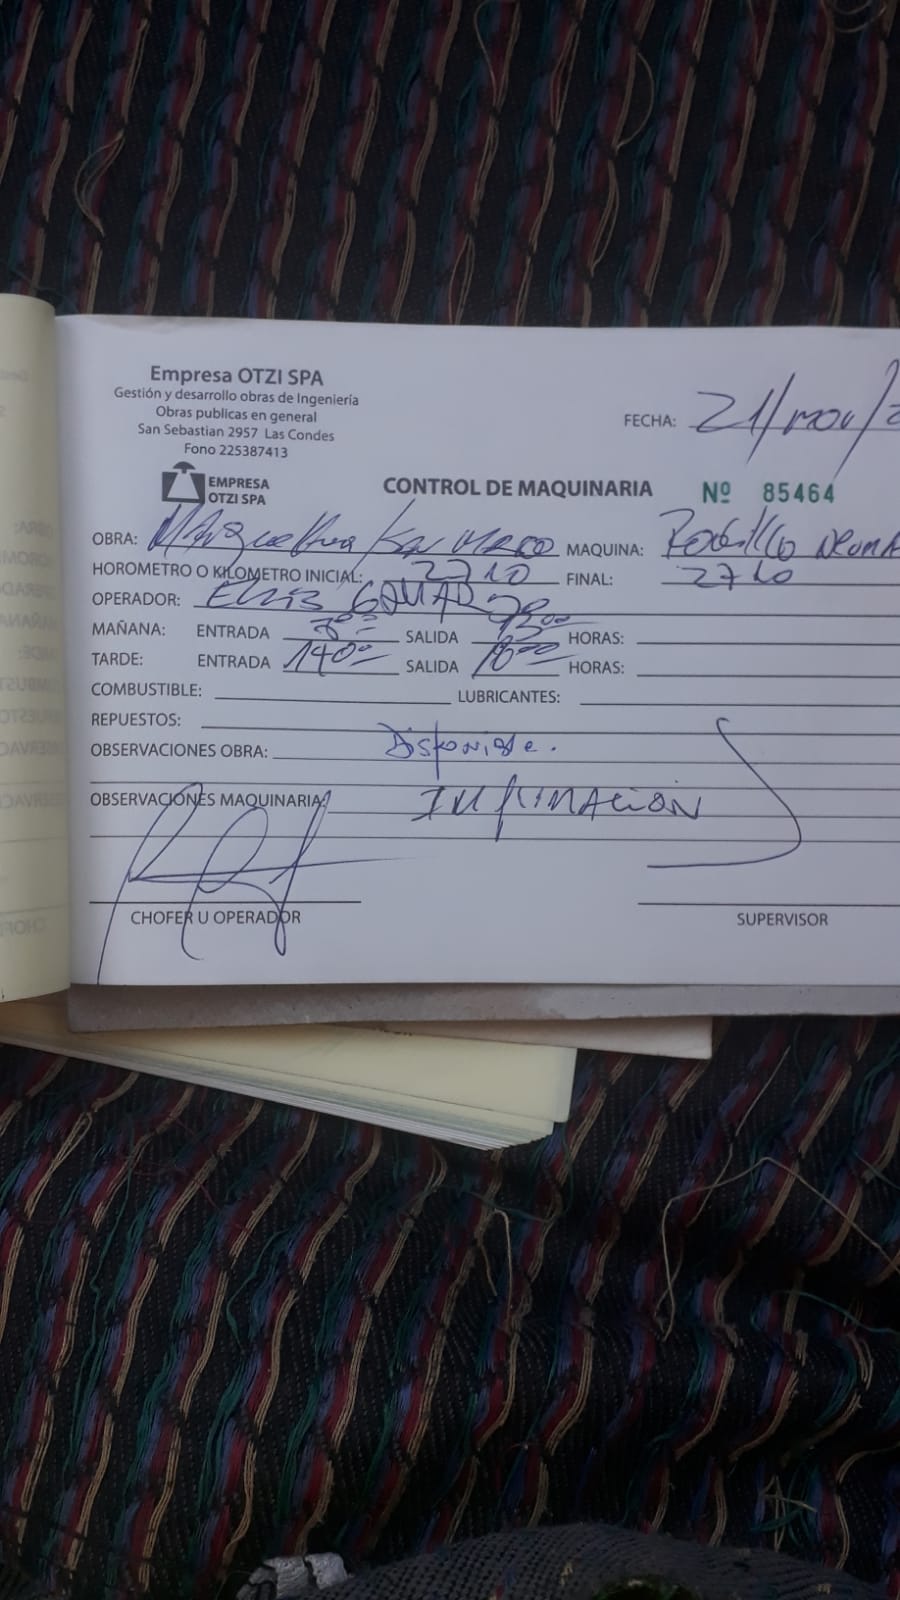 Empresa OTZI SPA
Gestión y desarrollo obras de Ingeniería
Obras publicas en general
San Sebastian 2957 Las Condes
Fono 225387413
FECHA: 21/nov/2
EMPRESA
OTZI SPA
CONTROL DE MAQUINARIA Nº 85464
OBRA: MAQUINA: Rodillo NEUMA
HOROMETRO O KILOMETRO INICIAL: 2710 FINAL: 2710
OPERADOR:
MAÑANA: ENTRADA 8:00 SALIDA 13:00 HORAS:
TARDE: ENTRADA 14:00 SALIDA 18:00 HORAS:
COMBUSTIBLE: LUBRICANTES:
REPUESTOS:
OBSERVACIONES OBRA: Disponible.
OBSERVACIONES MAQUINARIA: IMPRIMACION
CHOFER U OPERADOR SUPERVISOR